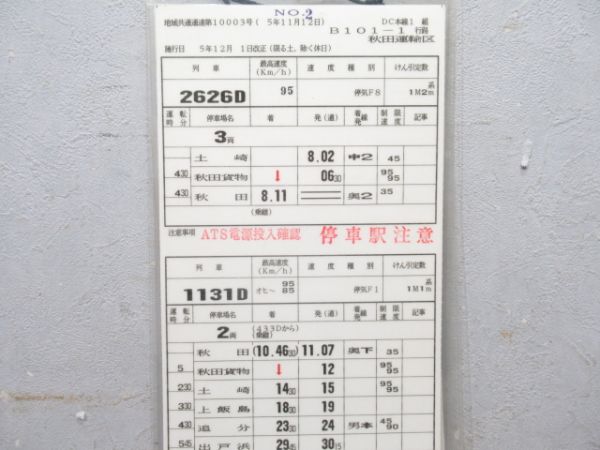 NO.2
地域共通通達第10003号( 5年11月12日)
DC本線1 組
B101-1 行路
秋田運輸区
施行日 5年12月 1日改正(限る土、除く休日)
列車 最高速度(Km/h) 速度種別 けん引定数
2626D 95 停気F8 系 1M2m
運転時分 停車場名 着 発(通) 着発線 制限速度 記事
3両
土崎 8.02 中2 45
430 秋田貨物 ↓ 06 30 95 95
430 秋田 8.11 奥2 35
(乗継)
注意事項 ATS電源投入確認 停車駅注意
列車 最高速度(Km/h) 速度種別 けん引定数
1131D オヒ~ 95 85 停気F1 系 1M1m
運転時分 停車場名 着 発(通) 着発線 制限速度 記事
2両 (433Dから) (乗継)
秋田 (10.46 30) 11.07 奥下 35
5 秋田貨物 ↓ 12 95 95
230 土崎 14 30 15 95 95
330 上飯島 18 30 19
430 追分 23 30 24 男本 45 90
545 出戸浜 29 45 30 15